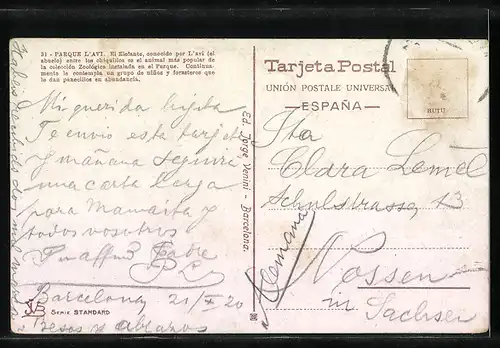 31 - PARQUE L'AVI. El Elefante, conocido por L'avi (el
abuelo) entre los chiquillos es el animal más popular de
la colección Zoológica instalada en el Parque. Continua-
mente le contempla un grupo de niños y forasteros que
le dan panecillos en abundancia.
Mi querida hijita
Te envio esta tarjeta
y mañana seguirá
una carta larga
para Mamaita y
todos vosotros
Tu affmo Padre
Barcelona 21/X 20
Besos y abrazos
Serie STANDARD
Ed. Jorge Venini - Barcelona.
Tarjeta Postal
UNIÓN POSTALE UNIVERSAL
—ESPAÑA—
HUTU
Srta
Clara Lemel
Schulstrasse 13
Nossen
in Sachsen
Alemania